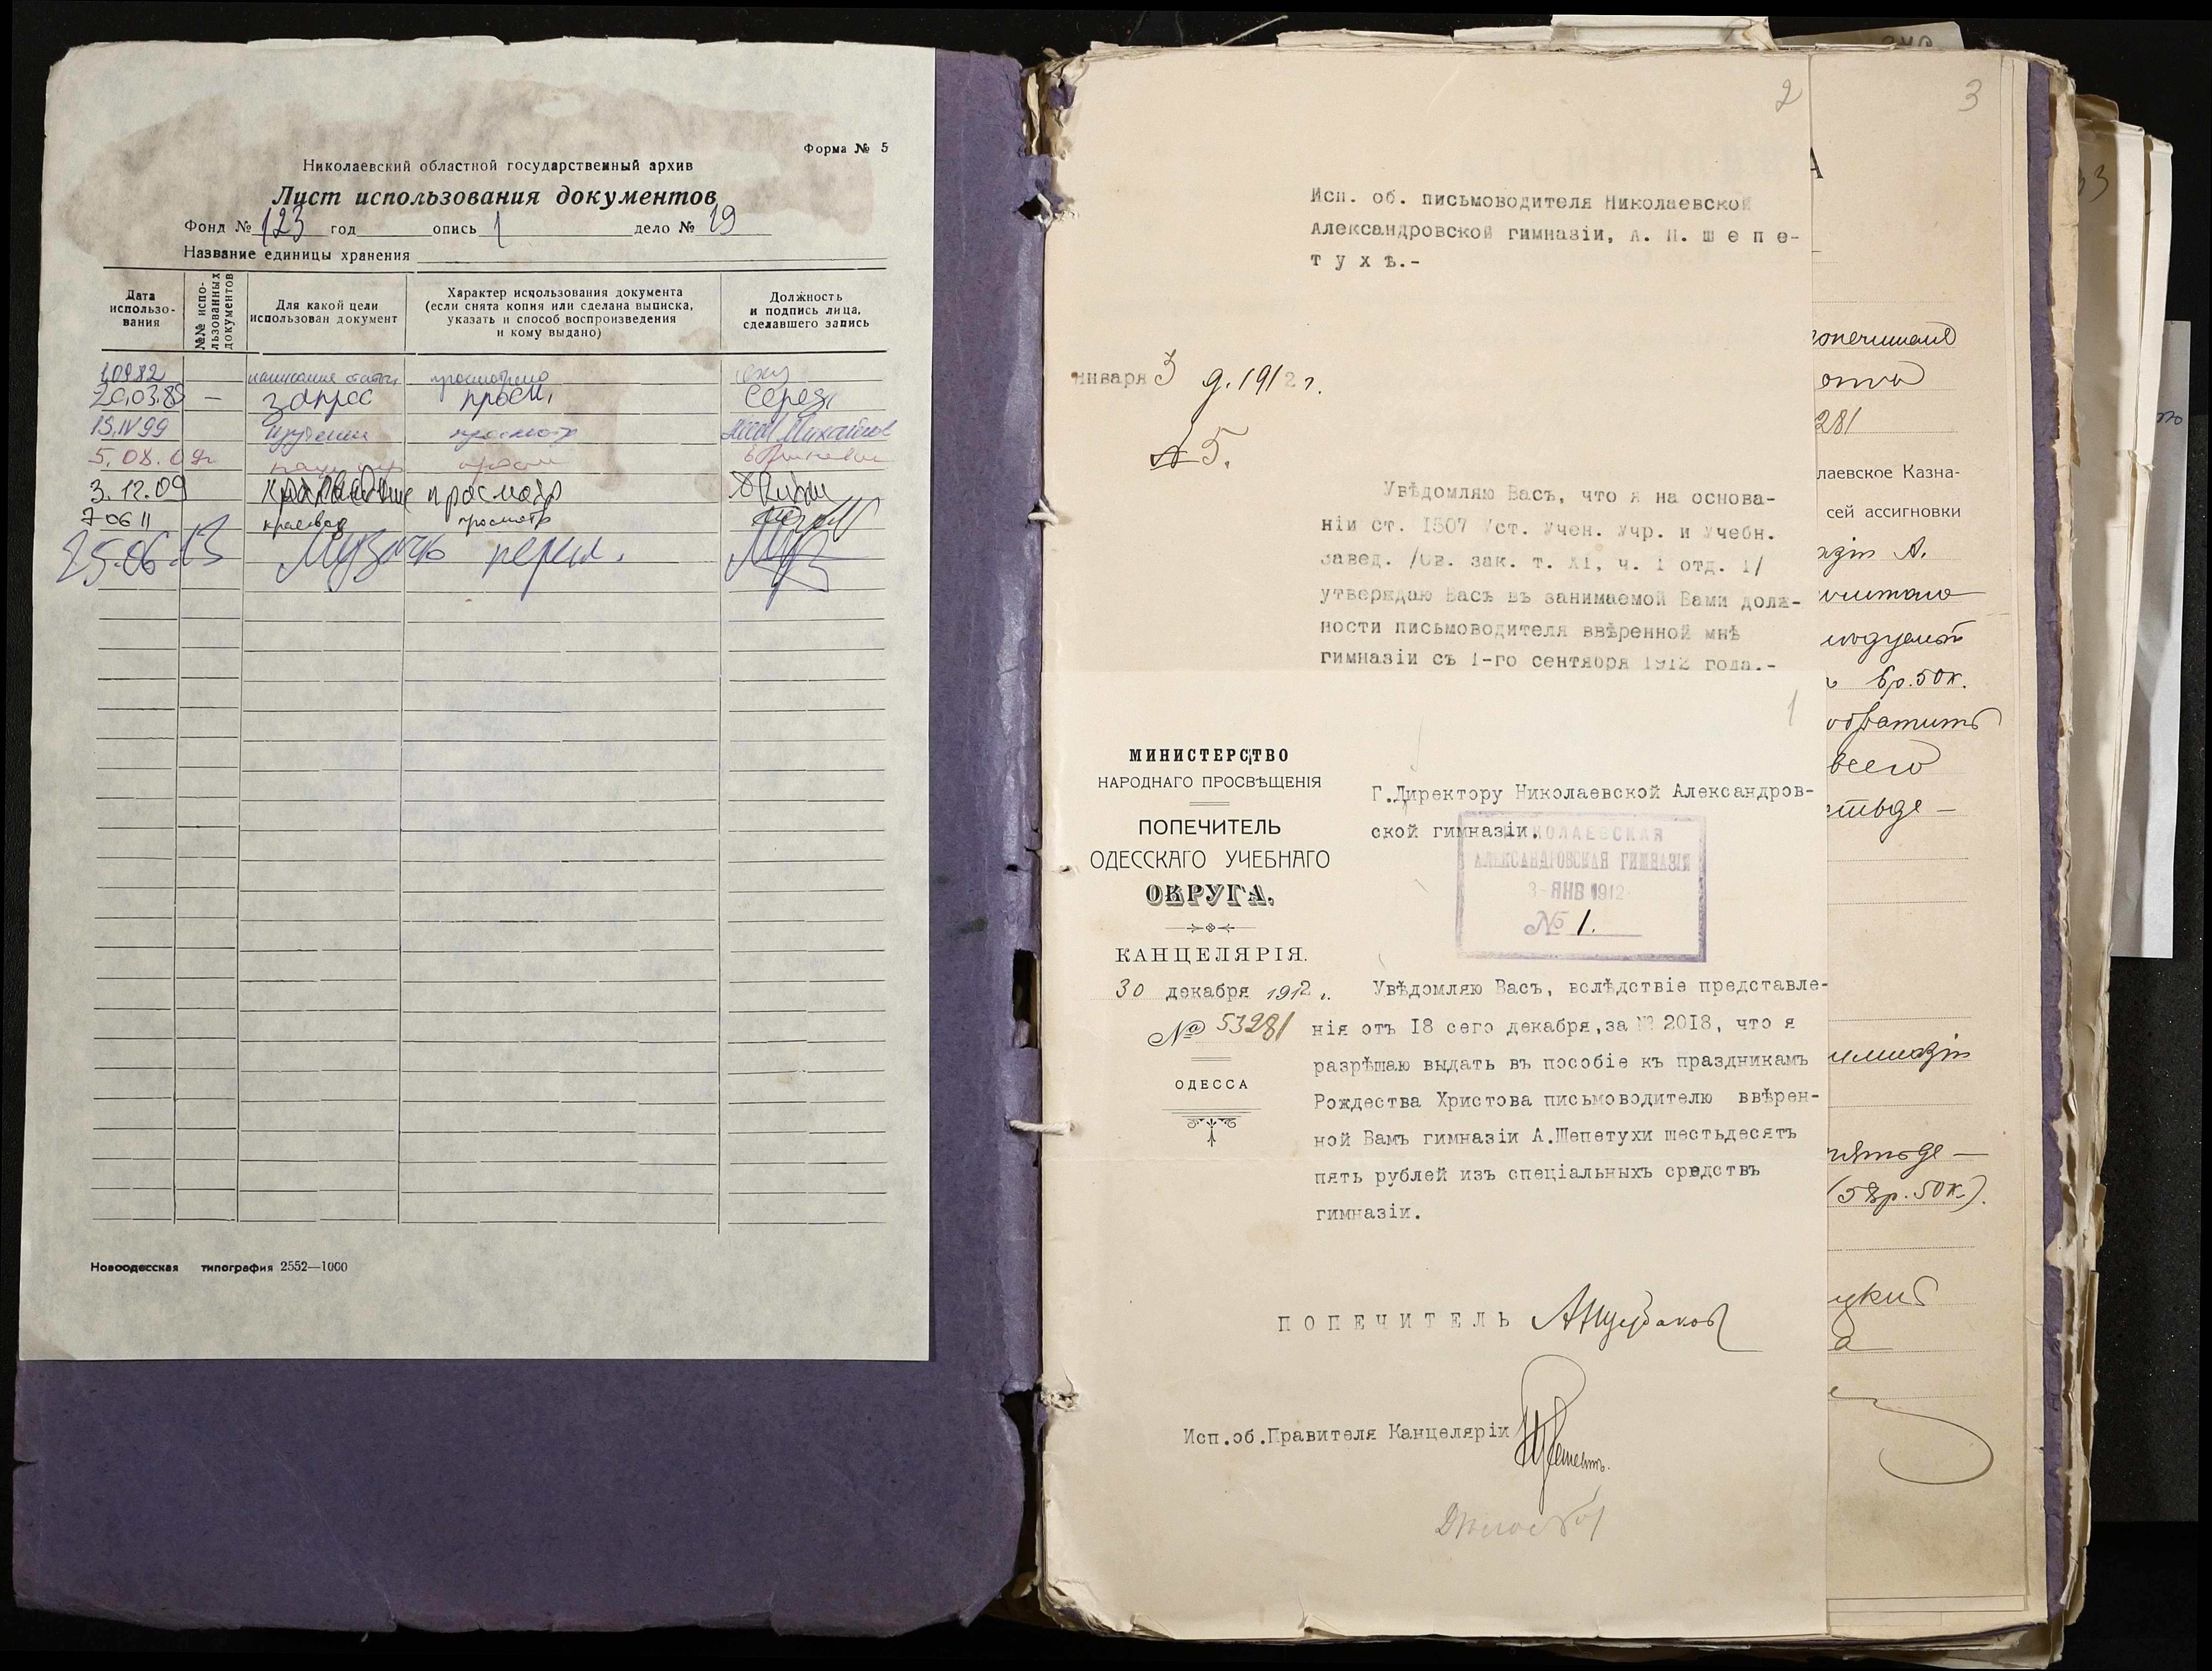 Форма № 5
Николаевский областной государственный архив
Лист использования документов
Фонд № 123 год опись 1 дело № 19
Название единицы хранения
Дата использо-вания
№№ испо-льзованных документов
Для какой цели использован документ
Характер использования документа (если снята копия или сделана выписка, указать и способ воспроизведения и кому выдано)
Должность и подпись лица, сделавшего запись
10982 написание статьи просмотрено
20.03.89 — запрос просм.
15.IV 99 изучение просмотр Михайлов
5.08.09г
3.12.09 краеведение просмотр
7 06 11 краевед просмотр
25.06.13
Новоодесская типография 2552—1000
2
Исп. об. письмоводителя Николаевской
Александровской гимназіи, А. П. Ш е п е-
т у х ѣ.-
января 3 д. 1912 г.
№ 5.
Увѣдомляю Васъ, что я на основа-
ніи ст. 1507 Уст. Учен. Учр. и Учебн.
Завед. /Св. зак. т. XI, ч. 1 отд. 1/
утверждаю Васъ въ занимаемой Вами долж-
ности письмоводителя ввѣренной мнѣ
гимназіи съ 1-го сентября 1912 года.-
1
МИНИСТЕРСТВО
НАРОДНАГО ПРОСВѢЩЕНІЯ
ПОПЕЧИТЕЛЬ
ОДЕССКАГО УЧЕБНАГО
ОКРУГА.
КАНЦЕЛЯРІЯ.
30 декабря 1912 г.
№ 53281
ОДЕССА
Г.Директору Николаевской Александров-
ской гимназіи.
НИКОЛАЕВСКАЯ
АЛЕКСАНДРОВСКАЯ ГИМНАЗІЯ
3-ЯНВ 1912
№ 1.
Увѣдомляю Васъ, вслѣдствіе представле-
нія отъ 18 сего декабря,за № 2018, что я
разрѣшаю выдать въ пособіе къ праздникамъ
Рождества Христова письмоводителю ввѣрен-
ной Вамъ гимназіи А.Шепетухи шестьдесятъ
пять рублей изъ спеціальныхъ средствъ
гимназіи.
П О П Е Ч И Т Е Л Ь
Исп.об.Правителя Канцеляріи
3
А
281
лаевское Казна-
сей ассигновки
А.
6р.50к.
всего
(58р.50к.).